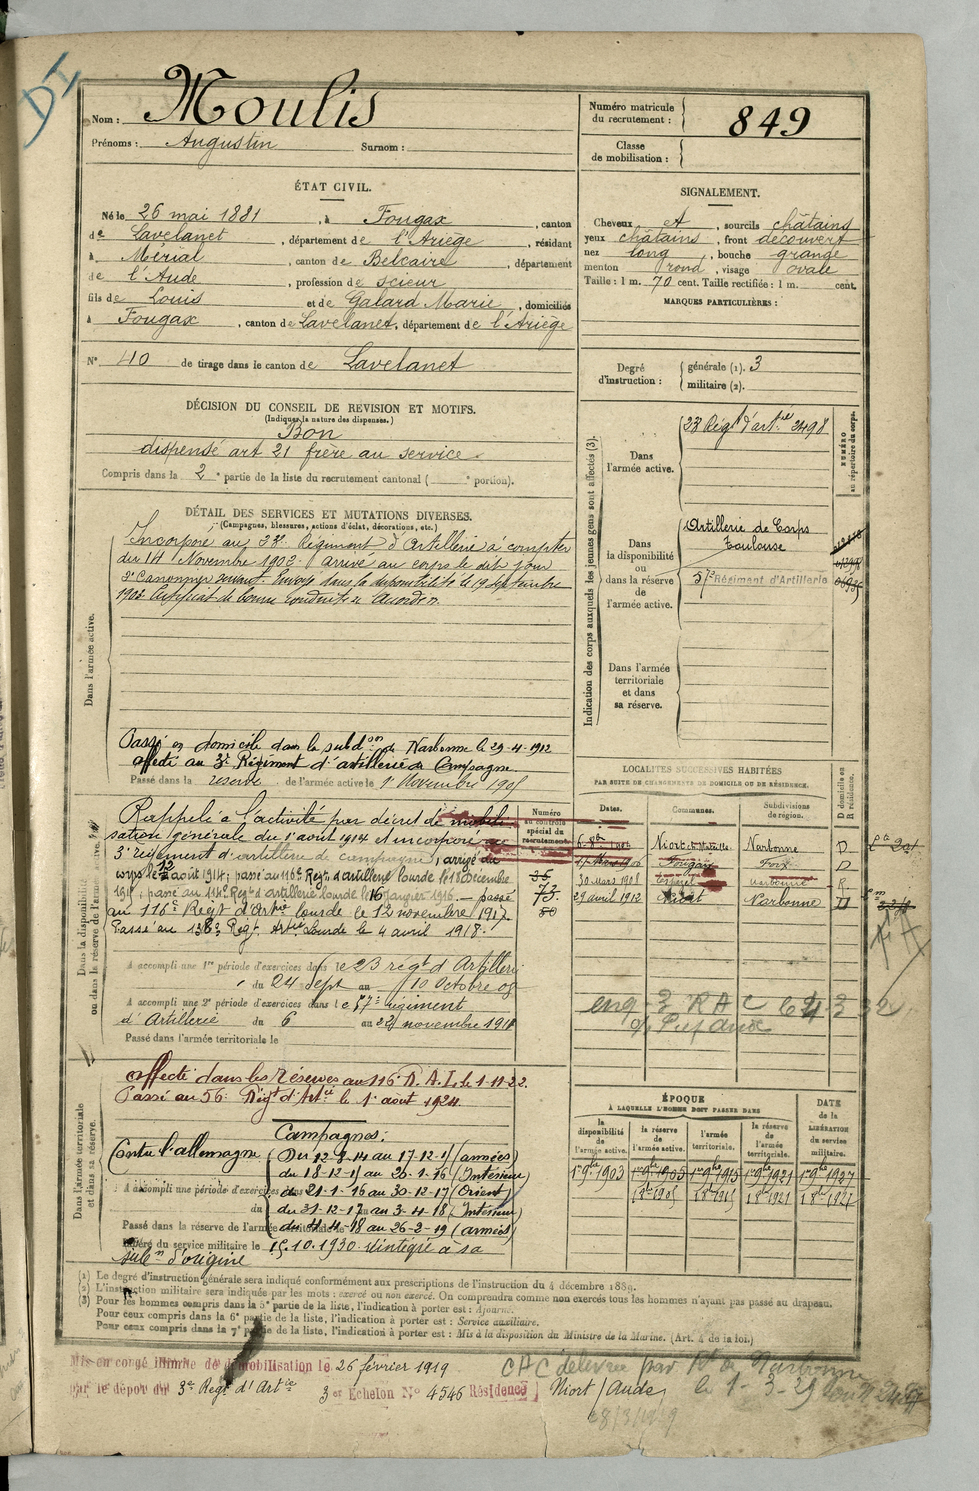 DI
Nom : Moulis
Prénoms : Augustin Surnom :
Numéro matricule du recrutement : 849
Classe de mobilisation :
ÉTAT CIVIL.
Né le 26 mai 1881, à Fougax, canton
de Lavelanet, département de l'Ariège, résidant
à Mérial, canton de Belcaire, département
de l'Aude, profession de scieur
fils de Louis et de Galard Marie, domiciliés
à Fougax, canton de Lavelanet, département de l'Ariège
N° 40 de tirage dans le canton de Lavelanet
SIGNALEMENT.
Cheveux et, sourcils châtains
yeux châtains, front découvert
nez long, bouche grande
menton rond, visage ovale
Taille : 1 m. 70 cent. Taille rectifiée : 1 m. cent.
MARQUES PARTICULIÈRES :
Degré d'instruction : générale (1). 3
militaire (2).
DÉCISION DU CONSEIL DE REVISION ET MOTIFS.
(Indiquer la nature des dispenses.)
Bon
dispensé art 21 frère au service
Compris dans la 2e partie de la liste du recrutement cantonal ( e portion).
DÉTAIL DES SERVICES ET MUTATIONS DIVERSES.
(Campagnes, blessures, actions d'éclat, décorations, etc.)
Dans l'armée active.
Incorporé au 23e Régiment d'Artillerie à compter
du 14 Novembre 1902 arrivé au corps le dit jour
2e Canonnier servant. Envoyé dans la disponibilité le 19 septembre
1903 Certificat de bonne conduite Accordé
Passé en domicile dans la subdon de Narbonne le 29-4-1912
affecté au 3e Régiment d'artillerie de Campagne
Passé dans la réserve de l'armée active le 1 Novembre 1905
Indication des corps auxquels les jeunes gens sont affectés (3).
Dans l'armée active.
23 Régt d'artie 2498
NUMÉRO au répertoire du corps.
Dans la disponibilité ou dans la réserve de l'armée active.
Artillerie de Corps
Toulouse
57e Régiment d'Artillerie
Dans l'armée territoriale et dans sa réserve.
Dans la disponibilité ou dans la réserve de l'armée active.
Rappelé à l'activité par décret de mobili
sation générale du 1er août 1914 et incorporé au
3e régiment d'artillerie de campagne, arrivé au
corps le 12 août 1914; passé au 116e Regt d'artillerie lourde le 18 décembre
1915; passé au 114e Regt d'artillerie lourde le 16 janvier 1916. — passé
au 116e Regt d'Artie lourde le 12 novembre 1917.
Passé au 138e Regt Artie Lourde le 4 avril 1918.
Numéro au contrôle spécial du recrutement.
36
73
80
A accompli une 1re période d'exercices dans le 23 régt d'Artillerie
du 24 Sept au 10 Octobre 08
A accompli une 2e période d'exercices dans le 57e régiment
d'Artillerie du 6 au 22 novembre 1911
Passé dans l'armée territoriale le
LOCALITÉS SUCCESSIVES HABITÉES
PAR SUITE DE CHANGEMENTS DE DOMICILE OU DE RÉSIDENCE.
Dates. Communes. Subdivisions de région. D domicile ou R résidence.
Narbonne D
Fougax Foix D
30 Mars 1908 Narbonne R
29 avril 1912 Niort Narbonne D
Dans l'armée territoriale et dans sa réserve.
affecté dans les Réserves au 116e R.A.L. le 1-11-22.
Passé au 56e Régt d'Artie le 1er août 1924.
Campagnes :
Contre l'allemagne
Du 12-8-14 au 17-12-15 (armées)
du 18-12-15 au 20-1-16 (Intérieur)
du 21-1-16 au 30-12-17 (Orient)
du 31-12-17 au 3-4-18 (Intérieur)
du 4-4-18 au 26-2-19 (armées)
A accompli une période d'exercices dans
du
Passé dans la réserve de l'armée territoriale le
Libéré du service militaire le 15.10.1930. réintégré à sa
subon d'origine
ÉPOQUE
À LAQUELLE L'HOMME DOIT PASSER DANS
la disponibilité de l'armée active. la réserve de l'armée active. l'armée territoriale. la réserve de l'armée territoriale. DATE de la LIBÉRATION du service militaire.
1er 9bre 1903 1er 9bre 1905 1er 9bre 1915 1er 9bre 1921 1er 9bre 1927
(1) Le degré d'instruction générale sera indiqué conformément aux prescriptions de l'instruction du 4 décembre 1889.
(2) L'instruction militaire sera indiquée par les mots : exercé ou non exercé. On comprendra comme non exercés tous les hommes n'ayant pas passé au drapeau.
(3) Pour les hommes compris dans la 5e partie de la liste, l'indication à porter est : Ajourné.
Pour ceux compris dans la 6e partie de la liste, l'indication à porter est : Service auxiliaire.
Pour ceux compris dans la 7e partie de la liste, l'indication à porter est : Mis à la disposition du Ministre de la Marine. (Art. 4 de la loi.)
Mis en congé illimité de démobilisation le 26 février 1919
par le dépôt du 3e Regt d'Artie 3er Echelon N° 4546 Résidence Niort (Aude)
CAC délivrée par Rt de Narbonne
le 1-3-29
28/3/1929